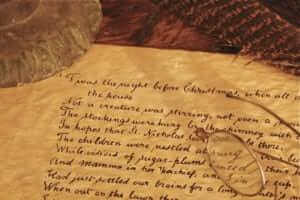 'Twas the night before Christmas, when all
the house
Not a creature was stirring, not even a
The stockings were hung by the chimney with
In hopes that St. Nicholas there;
The children were nestled
While visions of sugar-plums
And mamma in her 'kerchief, and
Had just settled our brains for a long
When out on the lawn